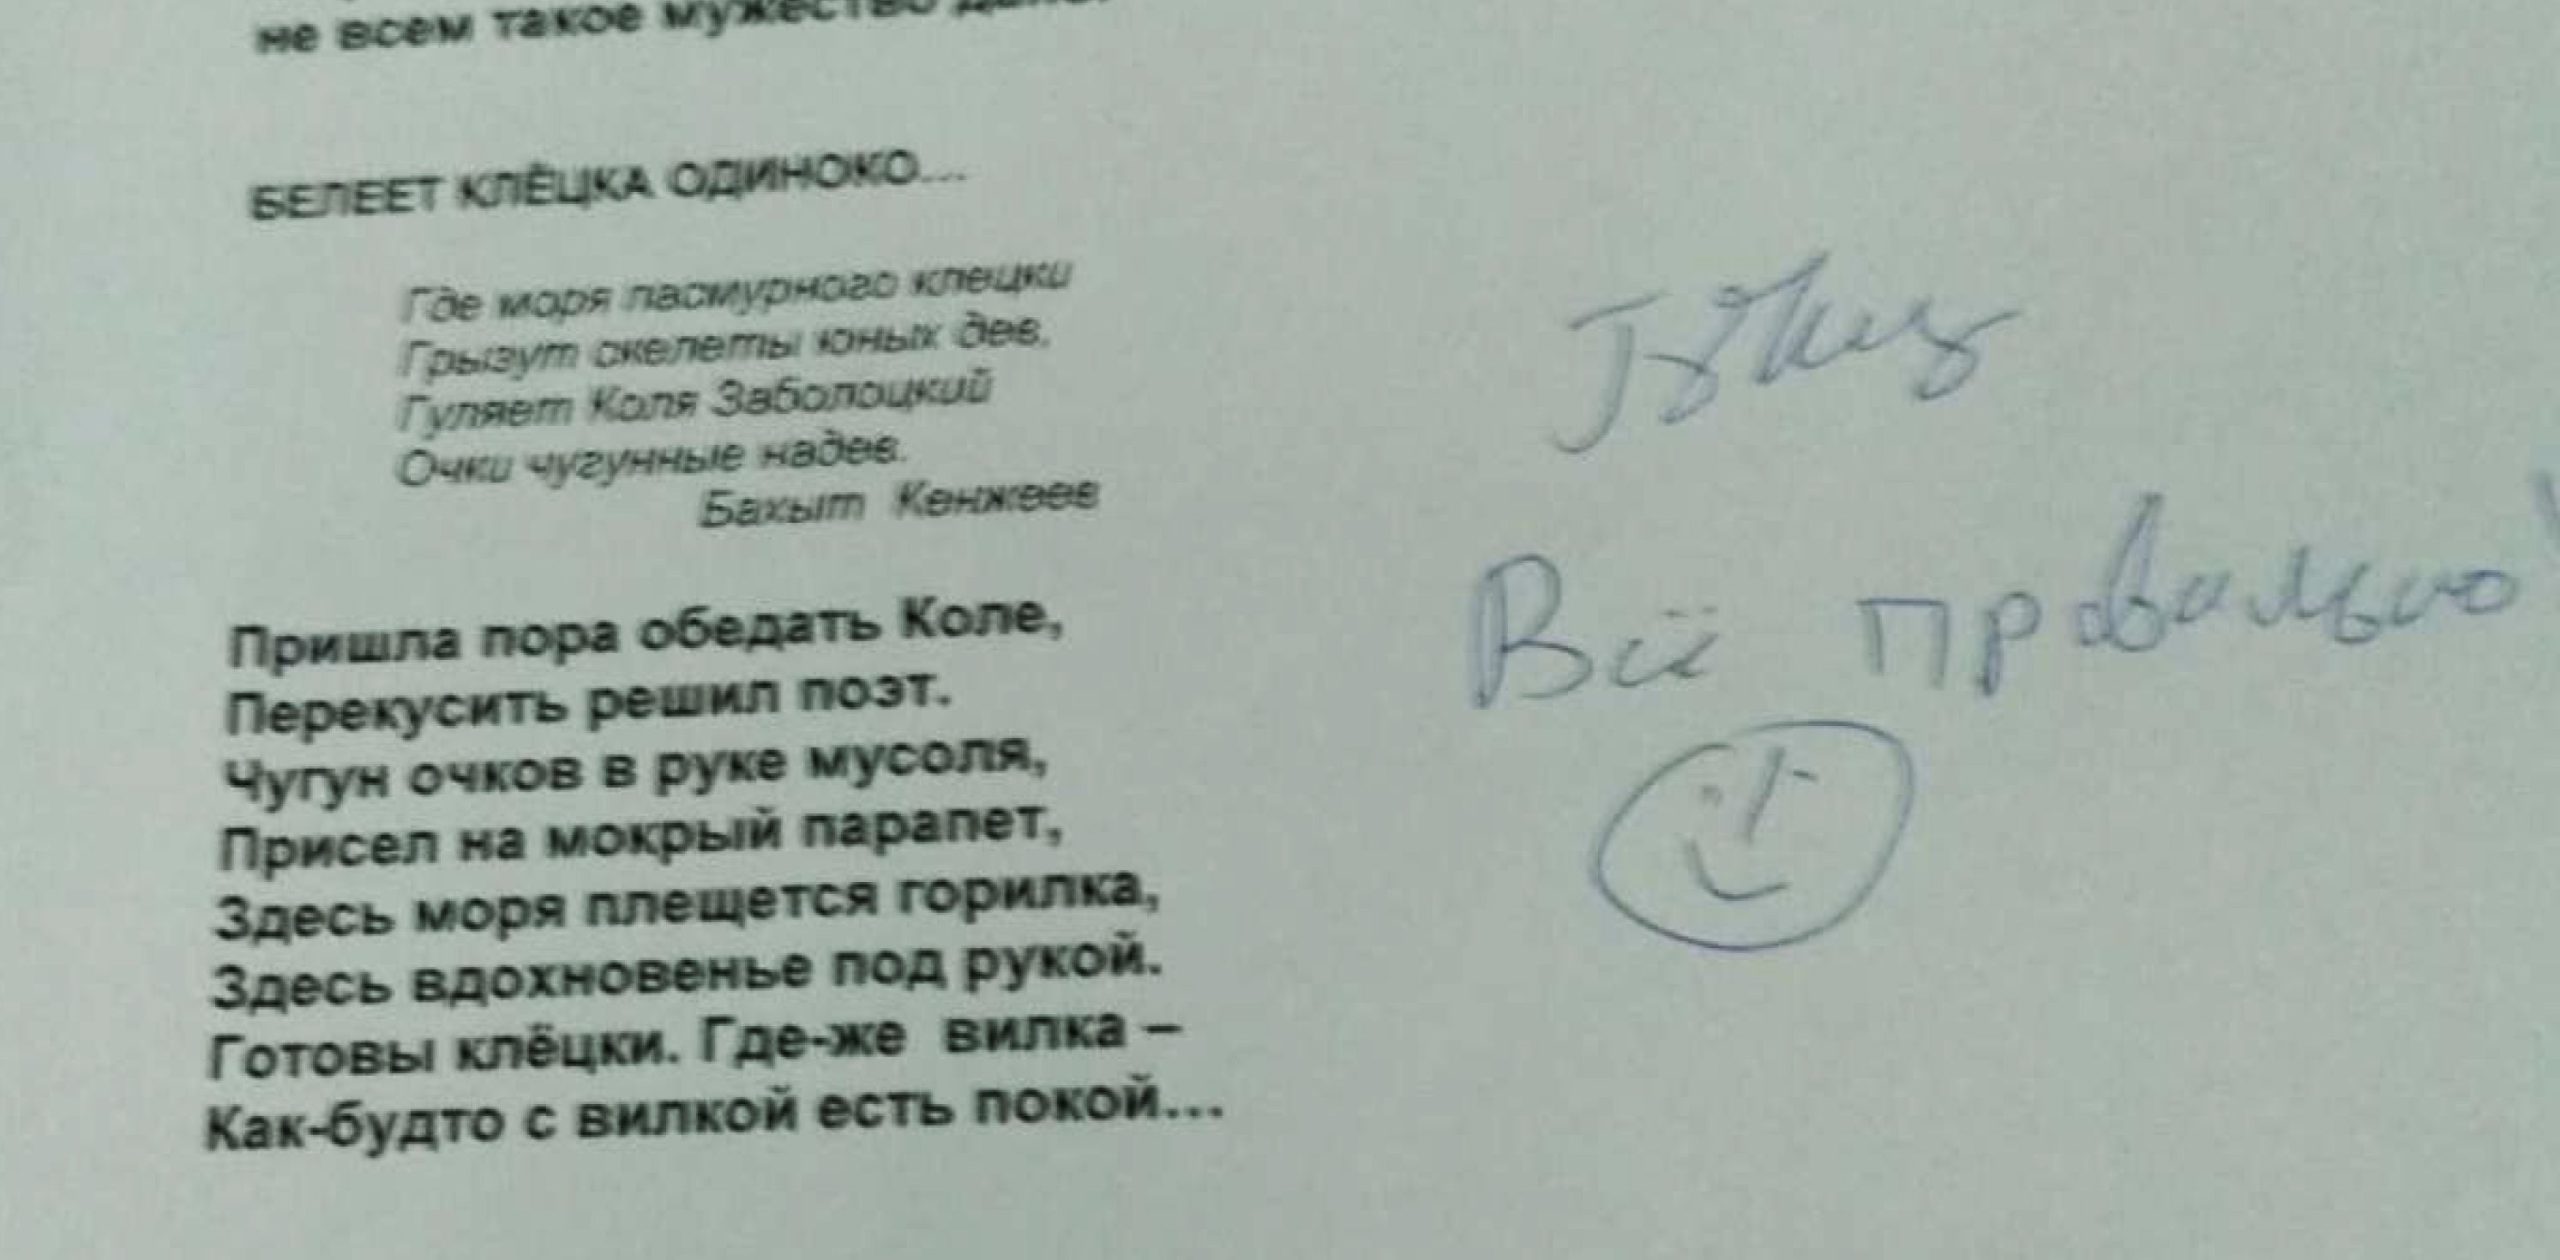 не всем такое мужество дано.
БЕЛЕЕТ КЛЁЦКА ОДИНОКО...
Где моря пасмурного клецки
Грызут скелеты юных дев,
Гуляет Коля Заболоцкий
Очки чугунные надев.
Бахыт Кенжеев
Пришла пора обедать Коле,
Перекусить решил поэт.
Чугун очков в руке мусоля,
Присел на мокрый парапет,
Здесь моря плещется горилка,
Здесь вдохновенье под рукой.
Готовы клёцки. Где-же вилка –
Как-будто с вилкой есть покой...
Всё правильно!